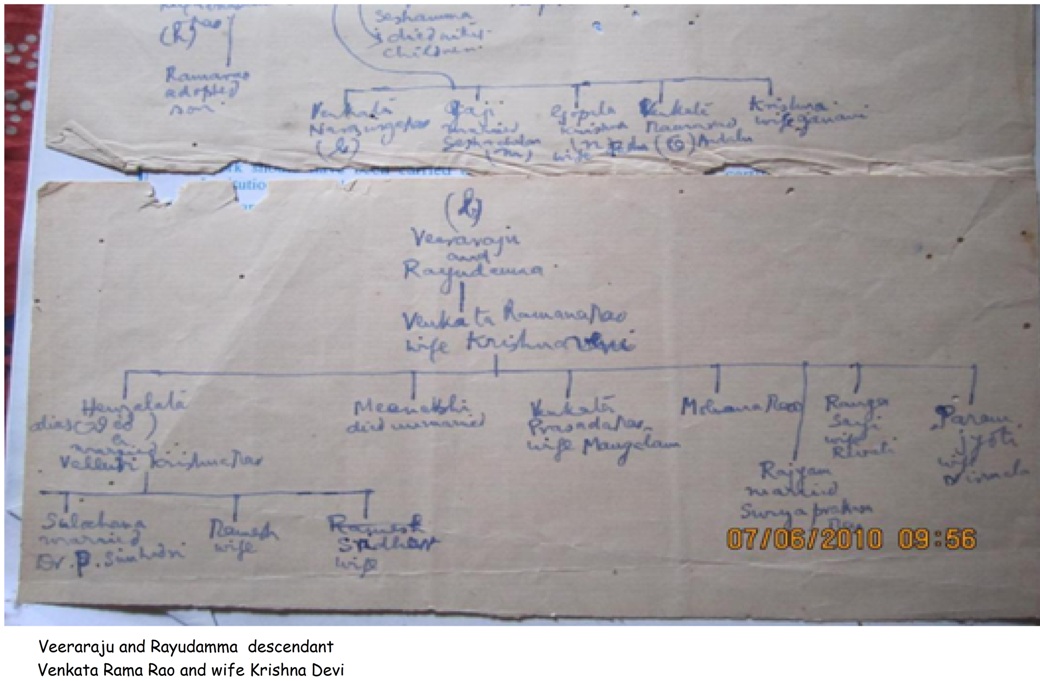 Seshamma
children
Ramarao
adopted
son
Venkata
Narsingarao
(h)
married
Gopala
Krishna
(n)
wife
Venkata
Ramarao
(G) Andalu
Krishna
wife
(h)
Veeraraju
and
Rayudamma
Venkata Ramanarao
wife Krishnaveni
Hemalata
married
Valluri Krishnarao
Meenakshi
died unmarried
Venkata
Prasadarao
wife Mangalam
Mohana Rao
Rajyam
married
Surya prakasa
Rao
Ranga
Sayi
wife
Revati
Param
jyoti
wife
Vimala
Sulochana
married
Dr. P. Simhadri
Ramesh
wife
Sridhar
wife
07/06/2010 09:56
Veeraraju and Rayudamma descendant
Venkata Rama Rao and wife Krishna Devi